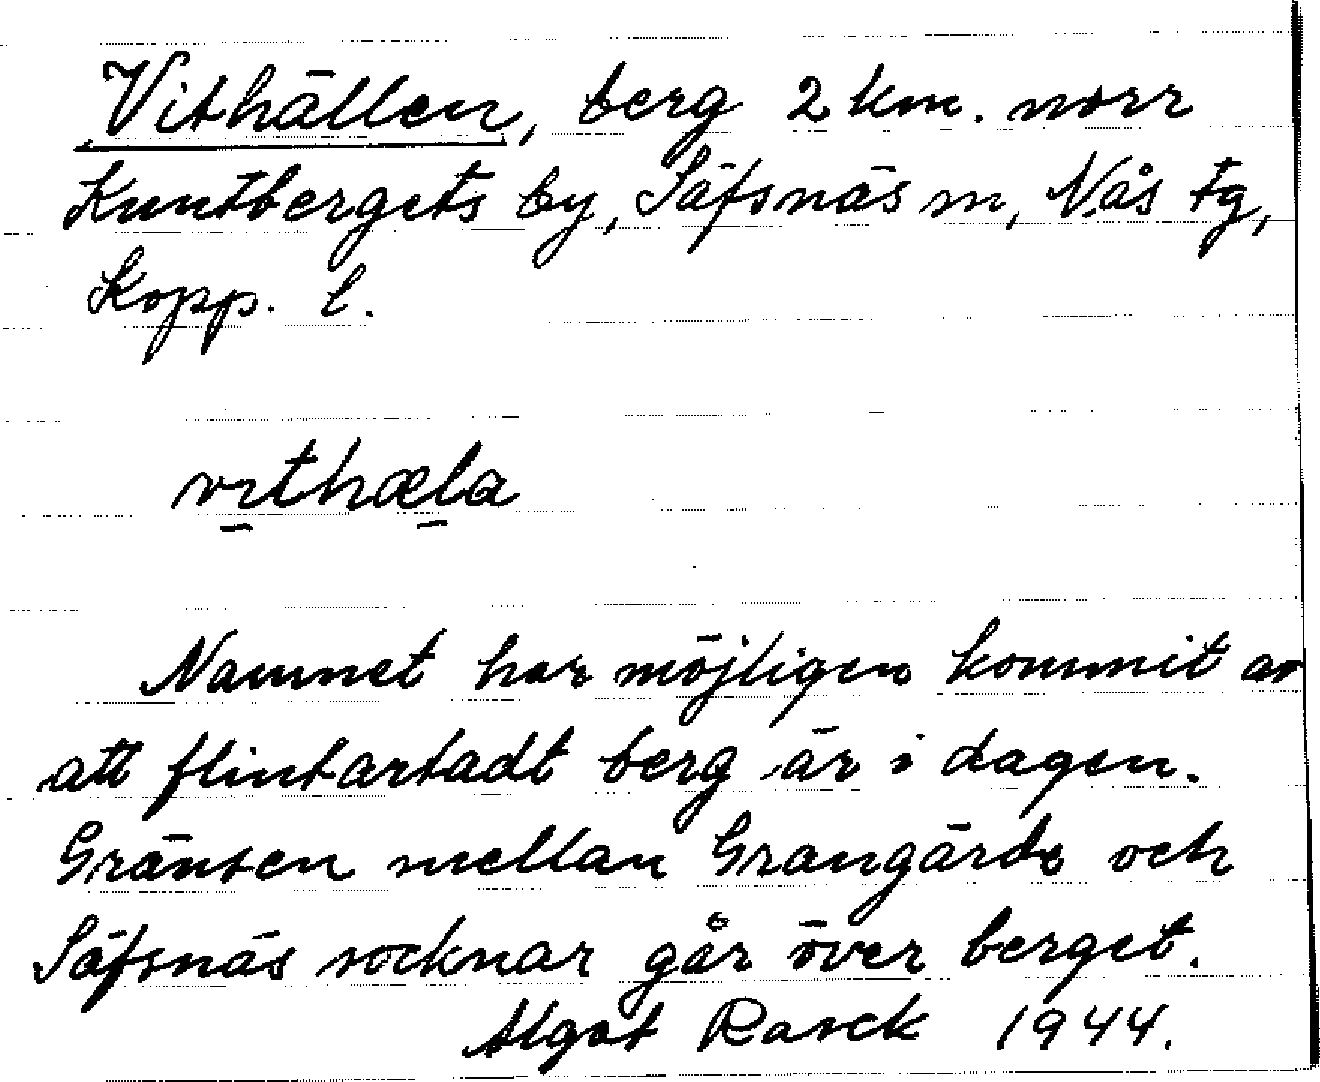 Vithällen, berg 2 km. norr
Knutbergets by, Säfsnäs sn, Nås tg,
Kopp. l.
vıthæla
Namnet har möjligen kommit av
att flintartadt berg är i dagen.
Gränsen mellan Grangärde och
Säfsnäs socknar går över berget.
Algot Rasck 1944.